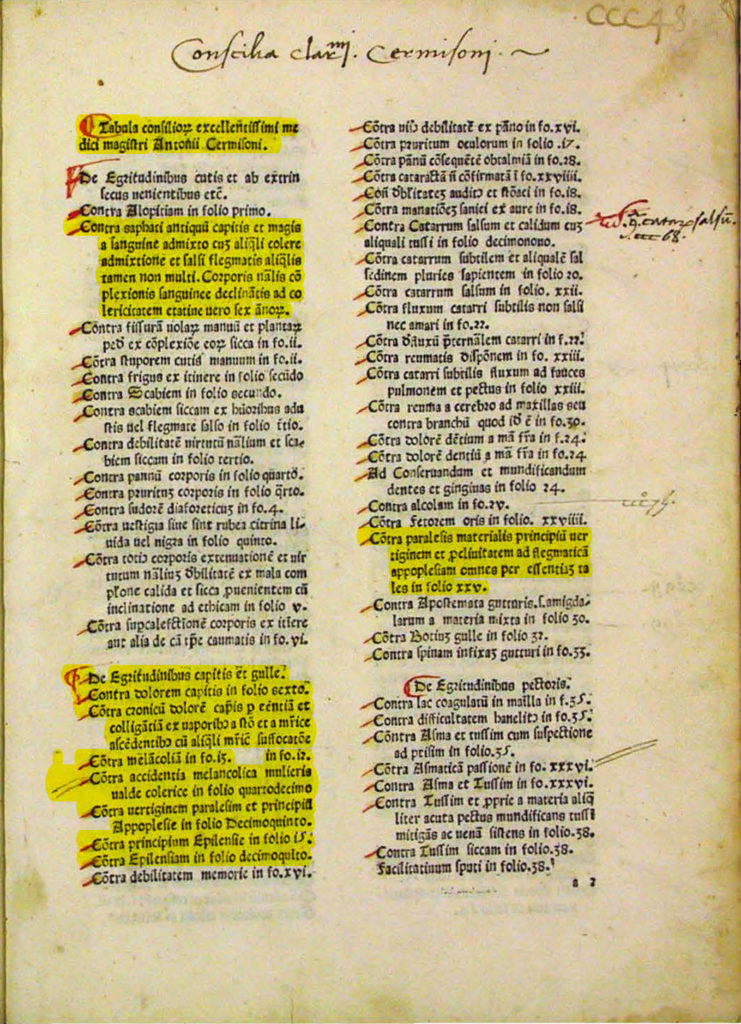 CCC48.
Consilia clar.mi Cermisoni.
Tabula consilioꝝ excellentissimi me
dici magistri Antonii Cermisoni.
De Egritudinibus cutis et ab extrin
secus uenientibus etc̄.
Contra Alopitiam in folio primo.
Contra saphati antiquū capitis et magis
a sanguine admixto cuꝫ aliq̄li colere
admixtione et salsi flegmatis aliq̄lis
tamen non multi. Corporis nālis cō
plexionis sanguinee declinātis ad co
lericitatem etatiue uero sex ānoꝝ.
Cōntra fissurā uolaꝝ manuū et plantaꝝ
pedū ex cōplexiōe eoꝝ sicca in fo.ii.
Cōtra stuporem cutis manuum in fo.ii.
Contra frigus ex itinere in folio secūdo
Contra Scabiem in folio secundo.
Contra scabiem siccam ex hūoribus adu
stis uel flegmate salso in folio t̄tio.
Contra debilitatē uirtutū nālium et sca
biem siccam in folio tertio.
Contra pannū corporis in folio quarto.
Contra pruritus corporis in folio q̄rto.
Contra sudorē diaforeticuꝫ in fo.4.
Cōtra uestigia siue sint rubea citrina li-
uida uel nigra in folio quinto.
Cōntra totiꝰ corporis extenuationē et uir
tutum nāliuꝫ d̄bilitatē ex mala com
pl̄one calida et sicca ꝓuenientem cū
inclinatione ad ethicam in folio v.
Cōtra supcalefctionē corporis ex itīere
aut alia de cā tꝑe caumatis in fo.vi.
De Egritudinibus capitis et gulle.
Contra dolorem capitis in folio sexto.
Cōtra cronicū dolorē capis ꝑ eēntiā et
colligātiā ex uaporibꝰ a stō et a mr̄ice
ascēdentibꝰ cū aliq̄li mr̄ic̄ suffocatōe
Cōtra melācoliā in fo.15. in fo.12.
Cōtra accidentia melancolica mulieris
ualde colerice in folio quartodecimo
Contra uertiginem paralesim et principiū
Appoplesie in folio Decimoquinto.
Cōtra principium Epilensie in folio 15.
Cōtra Epilensiam in folio decimoquīto.
Cōtra debilitatem memorie in fo.xvi.
Cōtra uisꝰ debilitatē ex pāno in fo.xvi.
Cōtra pruritum oculorum in folio .17.
Cōtra pānū cōsequētē obtalmiā in fo.18.
Cōtra cataractā nō confirmatā ī fo.xxviiii.
Con̄ d̄blitateꝫ auditꝰ et stōaci in fo.18.
Cōtra manatiōeꝫ saniei ex aure in fo.18.
Contra Catarrum salsum et calidum cuꝫ
aliquali tussi in folio decimonono.
Cōtra catarrum subtilem et aliqualē sal
sedinem pluries sapientem in folio 20.
Cōtra catarrum salsum in folio. xxii.
Cōtra fluxum catarri subtilis non salsi
nec amari in fo.22.
Cōtra reumatis dispōnem in fo. xxiii.
Cōtra catarri subtilis fluxum ad fauces
pulmonem et pectus in folio xxiii.
Cōtra reuma a cerebro ad maxillas seu
contra branchū quod id ē in fo.30.
Cōtra dolorē dētium a mā fr̄a in f.24.
Cōtra dolorē dentiū a mā fr̄a in fo.24
Ad Conseruandum et mundificandum
dentes et gingiuas in folio 24.
Contra alcolam in fo.2v.
Cōtra Fetorem oris in folio. xxviiii.
Cōtra paralesis materialis principiū uer
tiginem et ꝓcliuitatem ad flegmaticā
appoplesiam omnes per essentiaꝫ ta
les in folio xxv.
Contra Apostemata gutturis. s.amigda-
larum a materia mixta in folio 30.
Cōtra Botiuꝫ gulle in folio 32.
Contra spinam infixaꝫ gutturi in fo.33.
De Egritudinibus pectoris.
Contra lac coagulatū in māilla in f.35.
Contra difficultatem hanelitꝰ in fo.35.
Contra Asma et tussim cum suspectione
ad ptisim in folio.35.
Contra Asmaticā passionē in fo.xxxvi.
Contra Asma et Tussim in fo.xxxvi.
Contra Tussim et ꝓprie a materia aliq̄
liter acuta pectus mundificans tussī
mitigās ac uenā sistens in folio.38.
Contra Tussim siccam in folio.38.
Facilitatiuum sputi in folio.38.
a 2